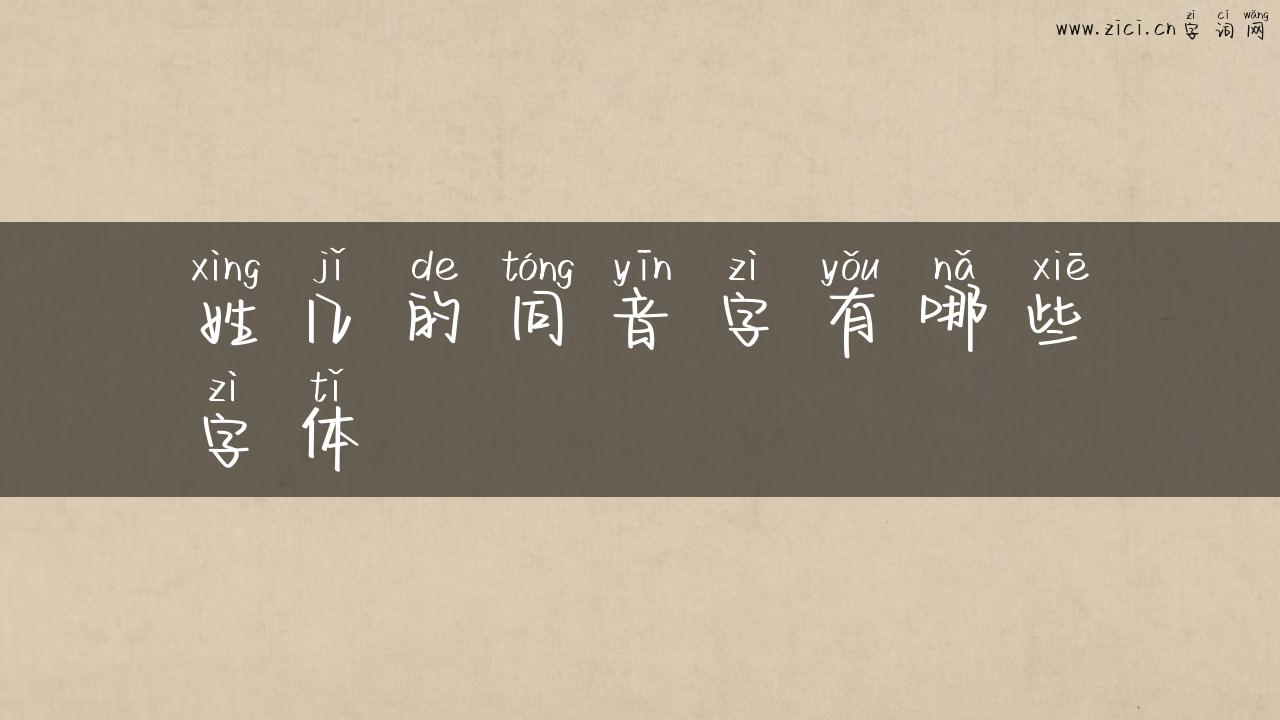 zì cí wǎng
www.zici.cn字词网
xìng jǐ de tóng yīn zì yǒu nǎ xiē
姓几的同音字有哪些
zì tǐ
字体